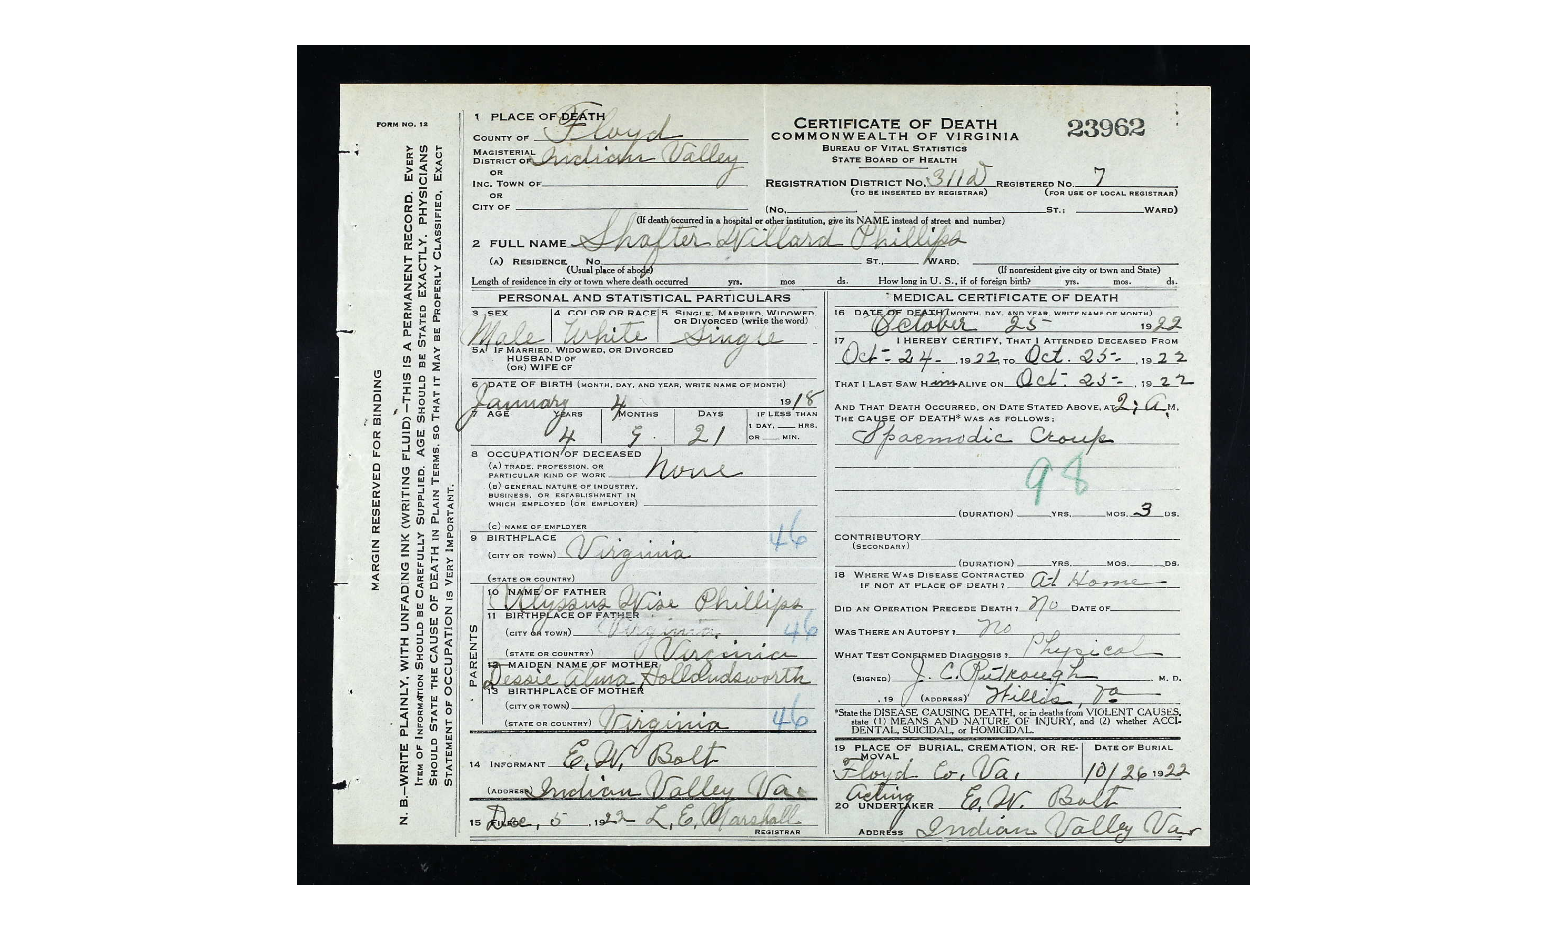 FORM NO. 12
MARGIN RESERVED FOR BINDING
N. B.—WRITE PLAINLY, WITH UNFADING INK (WRITING FLUID)—THIS IS A PERMANENT RECORD. EVERY
ITEM OF INFORMATION SHOULD BE CAREFULLY SUPPLIED. AGE SHOULD BE STATED EXACTLY. PHYSICIANS
SHOULD STATE THE CAUSE OF DEATH IN PLAIN TERMS, SO THAT IT MAY BE PROPERLY CLASSIFIED. EXACT
STATEMENT OF OCCUPATION IS VERY IMPORTANT.
1 PLACE OF DEATH
COUNTY OF Floyd
MAGISTERIAL DISTRICT OF Indian Valley
OR
INC. TOWN OF
OR
CITY OF
CERTIFICATE OF DEATH
COMMONWEALTH OF VIRGINIA
BUREAU OF VITAL STATISTICS
STATE BOARD OF HEALTH
23962
REGISTRATION DISTRICT NO. 311D REGISTERED NO. 7
(TO BE INSERTED BY REGISTRAR) (FOR USE OF LOCAL REGISTRAR)
(No, ST.; WARD)
(If death occurred in a hospital or other institution, give its NAME instead of street and number)
2 FULL NAME Shafter Willard Phillips
(A) RESIDENCE No. ST., WARD.
(Usual place of abode) (If nonresident give city or town and State)
Length of residence in city or town where death occurred yrs. mos ds. How long in U. S., if of foreign birth? yrs. mos. ds.
PERSONAL AND STATISTICAL PARTICULARS
3 SEX 4 COLOR OR RACE 5 SINGLE, MARRIED, WIDOWED
OR DIVORCED (write the word)
Male White Single
5A IF MARRIED, WIDOWED, OR DIVORCED
HUSBAND OF
(OR) WIFE OF
6 DATE OF BIRTH (MONTH, DAY, AND YEAR, WRITE NAME OF MONTH)
January 4 1918
7 AGE YEARS MONTHS DAYS IF LESS THAN
1 DAY, HRS.
OR MIN.
4 9 21
8 OCCUPATION OF DECEASED
(A) TRADE, PROFESSION, OR
PARTICULAR KIND OF WORK none
(B) GENERAL NATURE OF INDUSTRY,
BUSINESS, OR ESTABLISHMENT IN
WHICH EMPLOYED (OR EMPLOYER)
(C) NAME OF EMPLOYER
9 BIRTHPLACE 46
(CITY OR TOWN) Virginia
(STATE OR COUNTRY)
PARENTS
10 NAME OF FATHER
Ulyssus Wise Phillips
11 BIRTHPLACE OF FATHER
(CITY OR TOWN) Virginia 46
(STATE OR COUNTRY) Virginia
12 MAIDEN NAME OF MOTHER
Dessie Alma Hollandsworth
13 BIRTHPLACE OF MOTHER
(CITY OR TOWN)
(STATE OR COUNTRY) Virginia 46
14 INFORMANT E. W. Bolt
(ADDRESS) Indian Valley Va.
15 FILED Dec, 5 1922 L. E. Marshall
REGISTRAR
MEDICAL CERTIFICATE OF DEATH
16 DATE OF DEATH (MONTH, DAY, AND YEAR, WRITE NAME OF MONTH)
October 25- 1922
17 I HEREBY CERTIFY, THAT I ATTENDED DECEASED FROM
Oct- 24-, 1922, TO Oct. 25-, 1922
THAT I LAST SAW Him ALIVE ON Oct- 25-, 1922
AND THAT DEATH OCCURRED, ON DATE STATED ABOVE, AT 2; A M.
THE CAUSE OF DEATH* WAS AS FOLLOWS:
Spaemodic Croup
98
(DURATION) YRS. MOS. 3 DS.
CONTRIBUTORY
(SECONDARY)
(DURATION) YRS. MOS. DS.
18 WHERE WAS DISEASE CONTRACTED
IF NOT AT PLACE OF DEATH? At Home
DID AN OPERATION PRECEDE DEATH? No DATE OF
WAS THERE AN AUTOPSY? No
WHAT TEST CONFIRMED DIAGNOSIS? Physical
(SIGNED) J. C. Rutrough M. D.
, 19 (ADDRESS) Willis, Va
*State the DISEASE CAUSING DEATH, or in deaths from VIOLENT CAUSES,
state (1) MEANS AND NATURE OF INJURY, and (2) whether ACCI-
DENTAL, SUICIDAL, or HOMICIDAL.
19 PLACE OF BURIAL, CREMATION, OR RE-
MOVAL DATE OF BURIAL
Floyd Co, Va. 10/26 1922
Acting
20 UNDERTAKER E. W. Bolt
ADDRESS Indian Valley Va